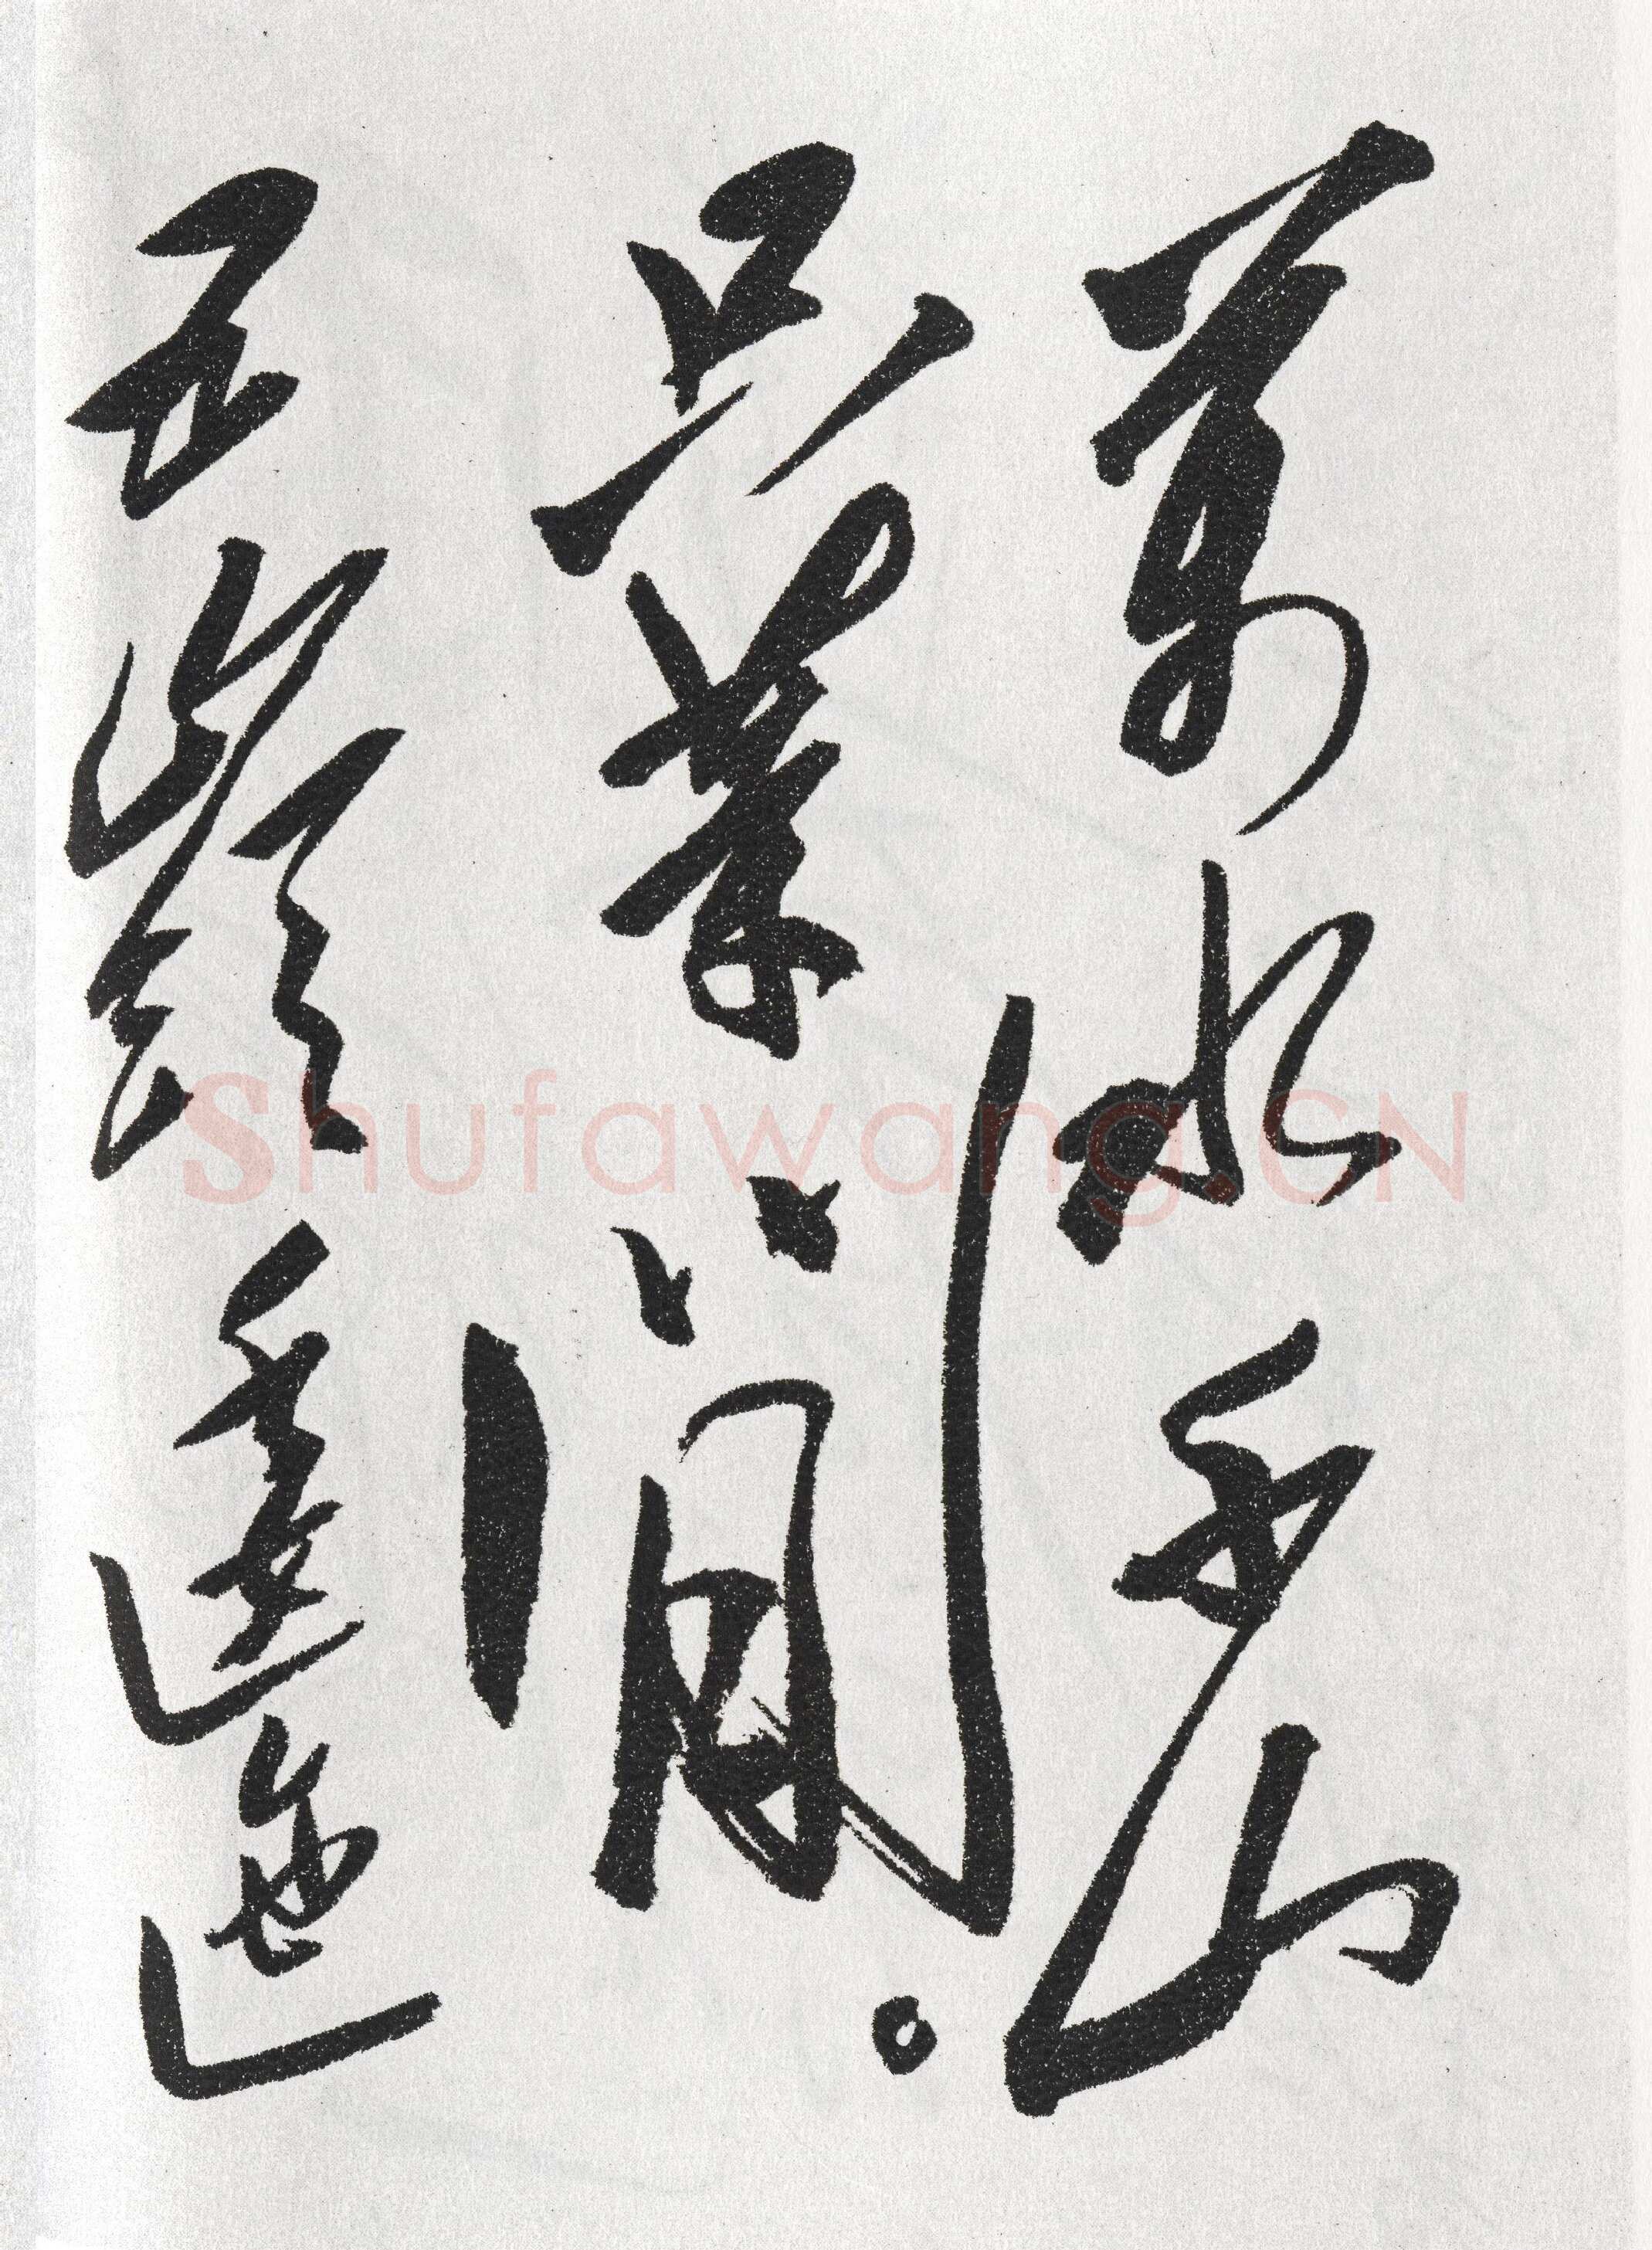 萬水千山
只等閒。
五嶺逶迤
Shufawang.CN